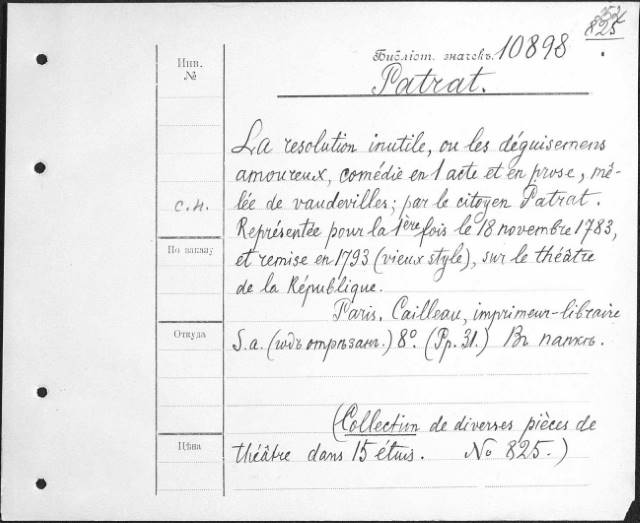 825
Библіот. значекъ. 10898
Patrat.
Инв.
№
La resolution inutile, ou les déguisemens
amoureux, comédie en 1 acte et en prose, mê-
с.н.
lée de vaudevilles; par le citoyen Patrat.
Représentée pour la 1ère fois le 18 novembre 1783,
По заказу
et remise en 1793 (vieux style), sur le théâtre
de la République.
Paris. Cailleau, imprimeur-libraire
Откуда
S.a. (годъ отрѣзанъ.) 8º. (Pp. 31.) Въ папкѣ.
(Collection de diverses pièces de
Цѣна
théâtre dans 15 étuis. No 825.)